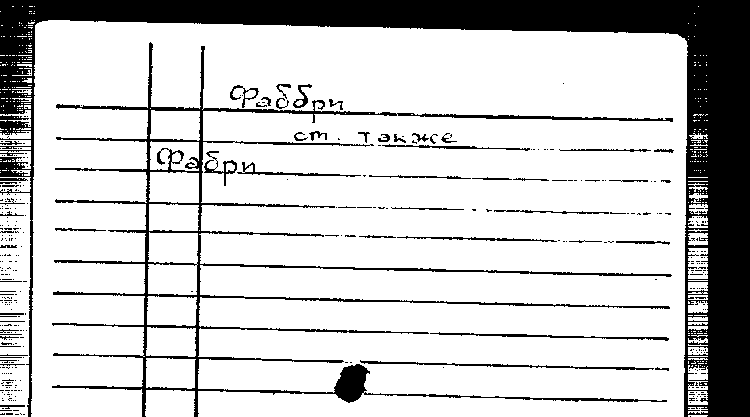 Фаббри
ст. также
Фабри